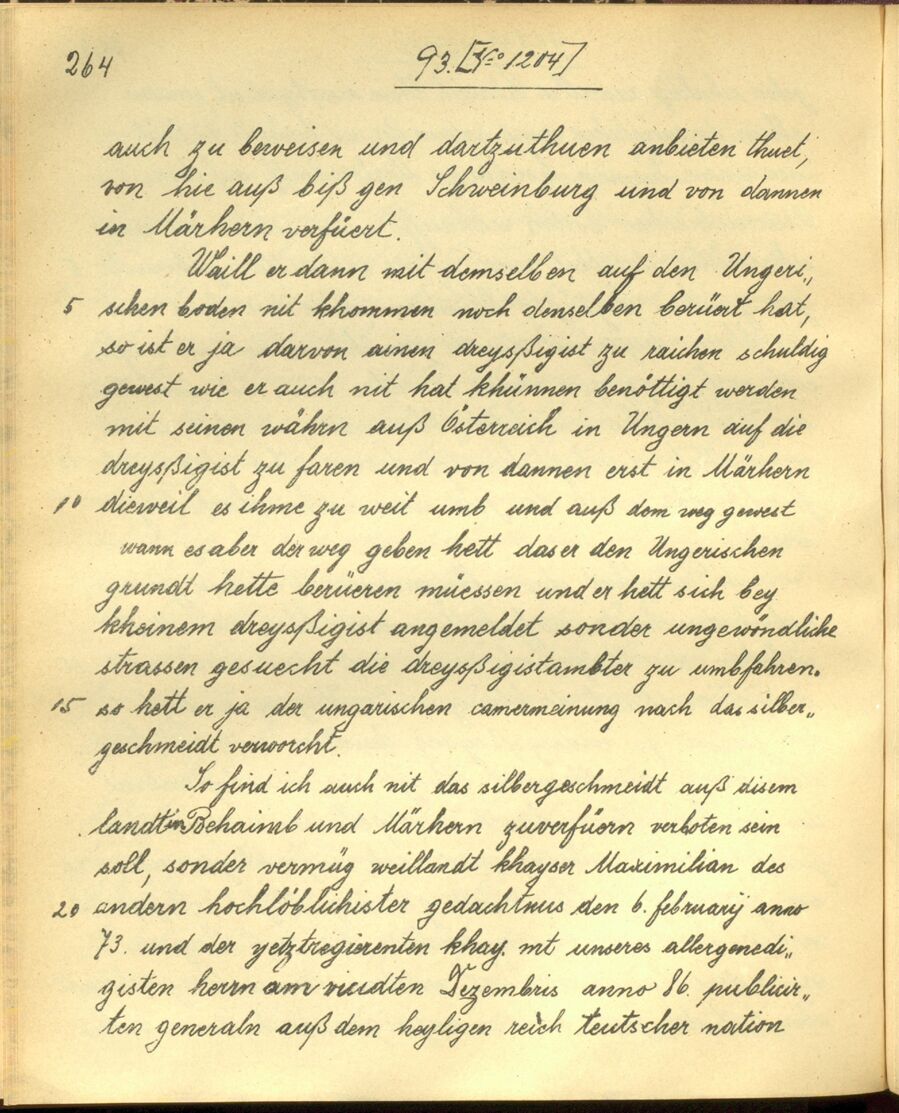 264
93. [No 1204]
auch zu beweisen und dartzuthuen anbieten thuet,
von hie auß biß gen Schweinburg und von dannen
in Märhern verfüert.
Waill er dann mit demselben auf den Ungeri„
5 schen boden nit khommen noch denselben berüert hat,
so ist er ja darvon ainen dreysßigist zu raichen schuldig
gewest wie er auch nit hat khünnen benöttigt werden
mit seinen währn auß Österreich in Ungern auf die
dreysßigist zu faren und von dannen erst in Märhern
10 dieweil es ihme zu weit umb und auß dem weg gewest
wann es aber der weg geben hett das er den Ungerischen
grundt hette berüeren müessen und er hett sich bey
kheinem dreysßigist angemeldet sonder ungewöndliche
strassen gesuecht die dreysßigistambter zu umbfahren.
15 so hett er ja der ungarischen camermeinung nach das silber„
geschmeidt verworcht.
So find ich auch nit das silbergeschmeidt auß disem
landt in Behaimb und Märhern zuverfüern verboten sein
soll, sonder vermüg weillandt khayser Maximilian des
20 andern hochlöblichister gedachtnus den 6. februarij anno
73. und der yetztregierenten khay. mt unseres allergenedi„
gisten herrn am Dezembris anno 86. publicir„
ten generaln auß dem heyligen reich teutscher nation